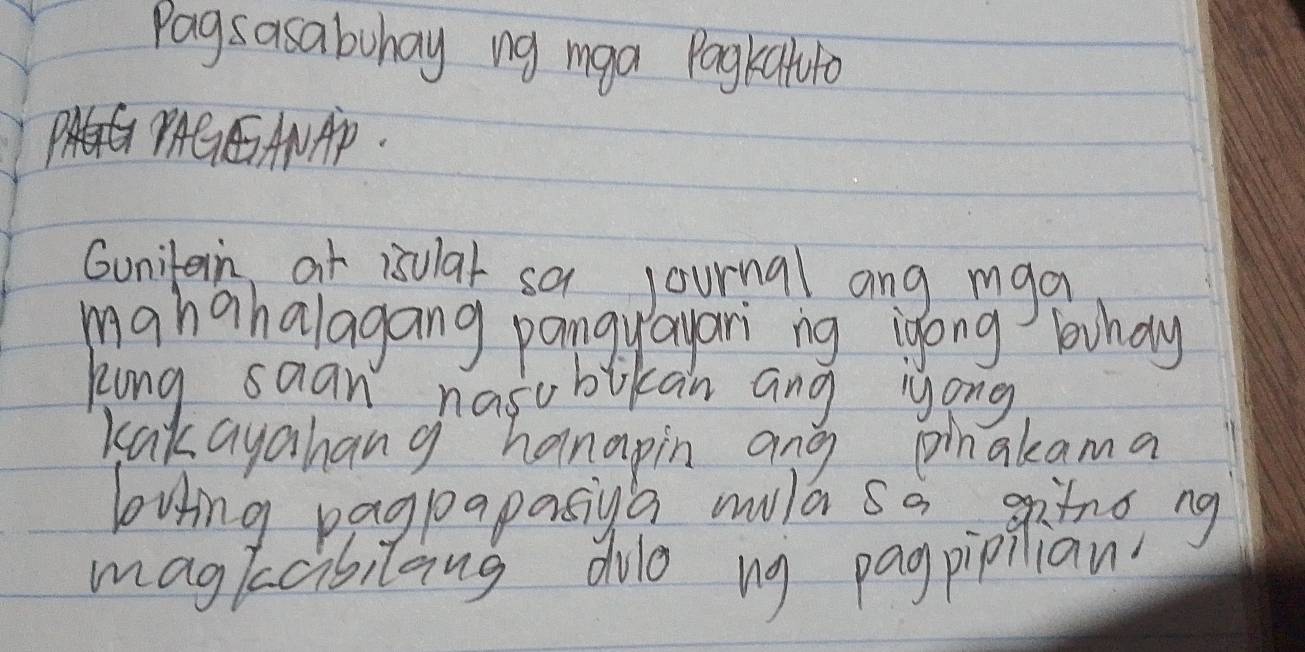 Pagsasabuhay ng mga Pagkatuto
PAGGANAP.
Gunitain at isulat sa journal ang mga
mahahalagang pangyayari ng iyong buhay
kung saan nasubukan ang iyong
kakayahang hanapin ang pinakama
buting pagpapasiya mula sa gitna ng
magkabilang dulo ng pagpipilian.